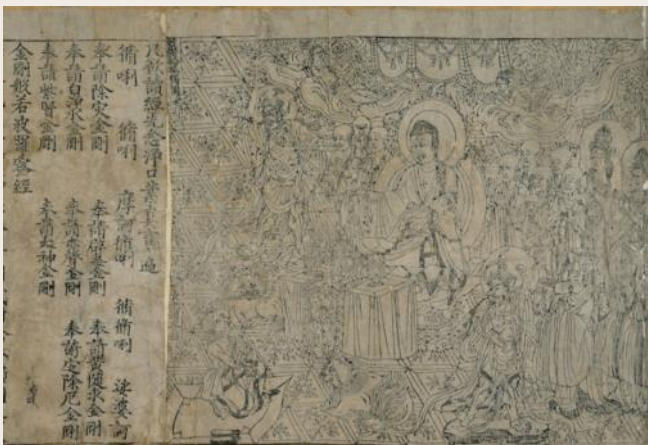 凡欲讀經先念淨口業真言一遍
脩唎 脩唎 摩訶脩唎 脩脩唎 娑婆訶
奉請除灾金剛 奉請辟毒金剛 奉請黃随求金剛
奉請白淨水金剛 奉請赤聲金剛 奉請定除厄金剛
奉請紫賢金剛 奉請大神金剛
金剛般若波羅蜜經